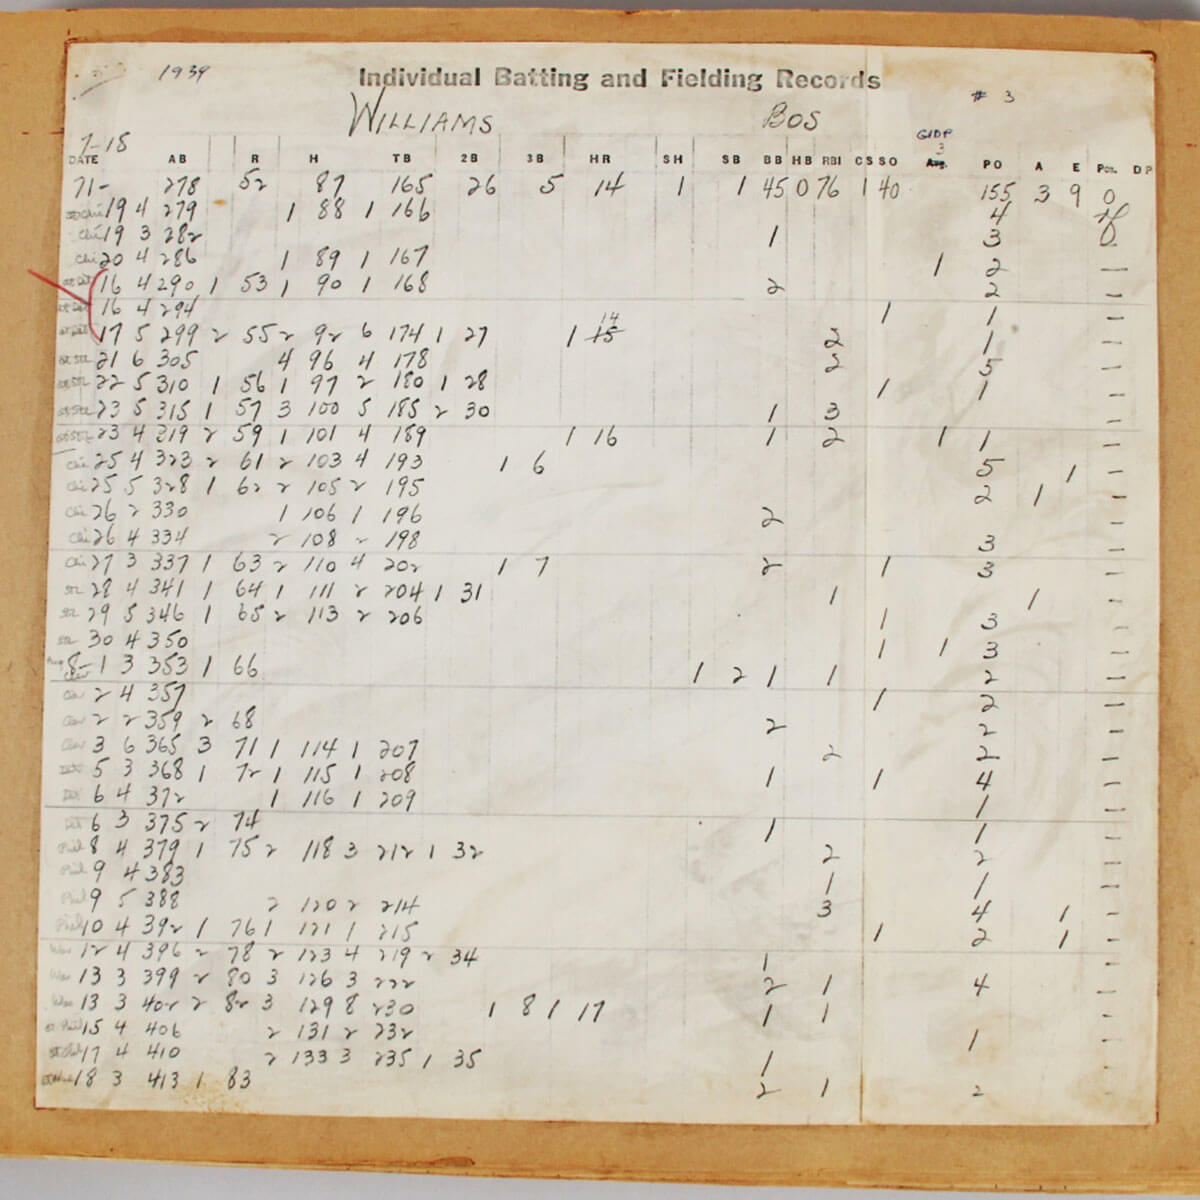 1939 Individual Batting and Fielding Records
# 3
WILLIAMS BOS
7-18 GIDP
3
DATE AB R H TB 2B 3B HR SH SB BB HB RBI CS SO Avg. PO A E Pos. DP
71- 278 52 87 165 26 5 14 1 1 45 0 76 1 40 155 3 9 0
at Chi 19 4 279 1 88 1 166 4
Chi 19 3 282 1 3
Chi 20 4 286 1 89 1 167 1 2 —
at Det 16 4 290 1 53 1 90 1 168 2 2 —
at Det 16 4 294 1 1 —
14
at Det 17 5 299 2 55 2 92 6 174 1 27 1 15 2 1 —
at StL 21 6 305 4 96 4 178 2 5 —
at StL 22 5 310 1 56 1 97 2 180 1 28 1 1 —
at StL 23 5 315 1 57 3 100 5 185 2 30 1 3 —
at StL 23 4 319 2 59 1 101 4 189 1 16 1 2 1 1 —
Chi 25 4 323 2 61 2 103 4 193 1 6 5 1 —
Chi 25 5 328 1 62 2 105 2 195 2 1 —
Chi 26 2 330 1 106 1 196 2 —
Chi 26 4 334 2 108 2 198 3 —
Chi 27 3 337 1 63 2 110 4 202 1 7 2 1 3 —
StL 28 4 341 1 64 1 111 2 204 1 31 1 1 —
StL 29 5 346 1 65 2 113 2 206 1 3 —
StL 30 4 350 1 1 3 —
Aug 8-1 3 353 1 66 1 2 1 1 2 —
Clev
Clev 2 4 357 1 2 —
Clev 2 2 359 2 68 2 2 —
Clev 3 6 365 3 71 1 114 1 207 2 2 —
Det 5 3 368 1 72 1 115 1 208 1 1 4 —
Det 6 4 372 1 116 1 209 1 —
Det 6 3 375 2 74 1 1 —
Phil 8 4 379 1 75 2 118 3 212 1 32 2 2 —
Phil 9 4 383 1 1 —
Phil 9 5 388 2 120 2 214 3 4 1 —
Phil 10 4 392 1 76 1 121 1 215 1 2 1 —
Was 12 4 396 2 78 2 123 4 219 2 34 1 —
Was 13 3 399 2 80 3 126 3 222 2 1 4 —
Was 13 3 402 2 82 3 129 8 230 1 8 1 17 1 1 —
at Phil 15 4 406 2 131 2 232 1 —
at Phil 17 4 410 2 133 3 235 1 35 1 —
18 3 413 1 83 2 1 2 -